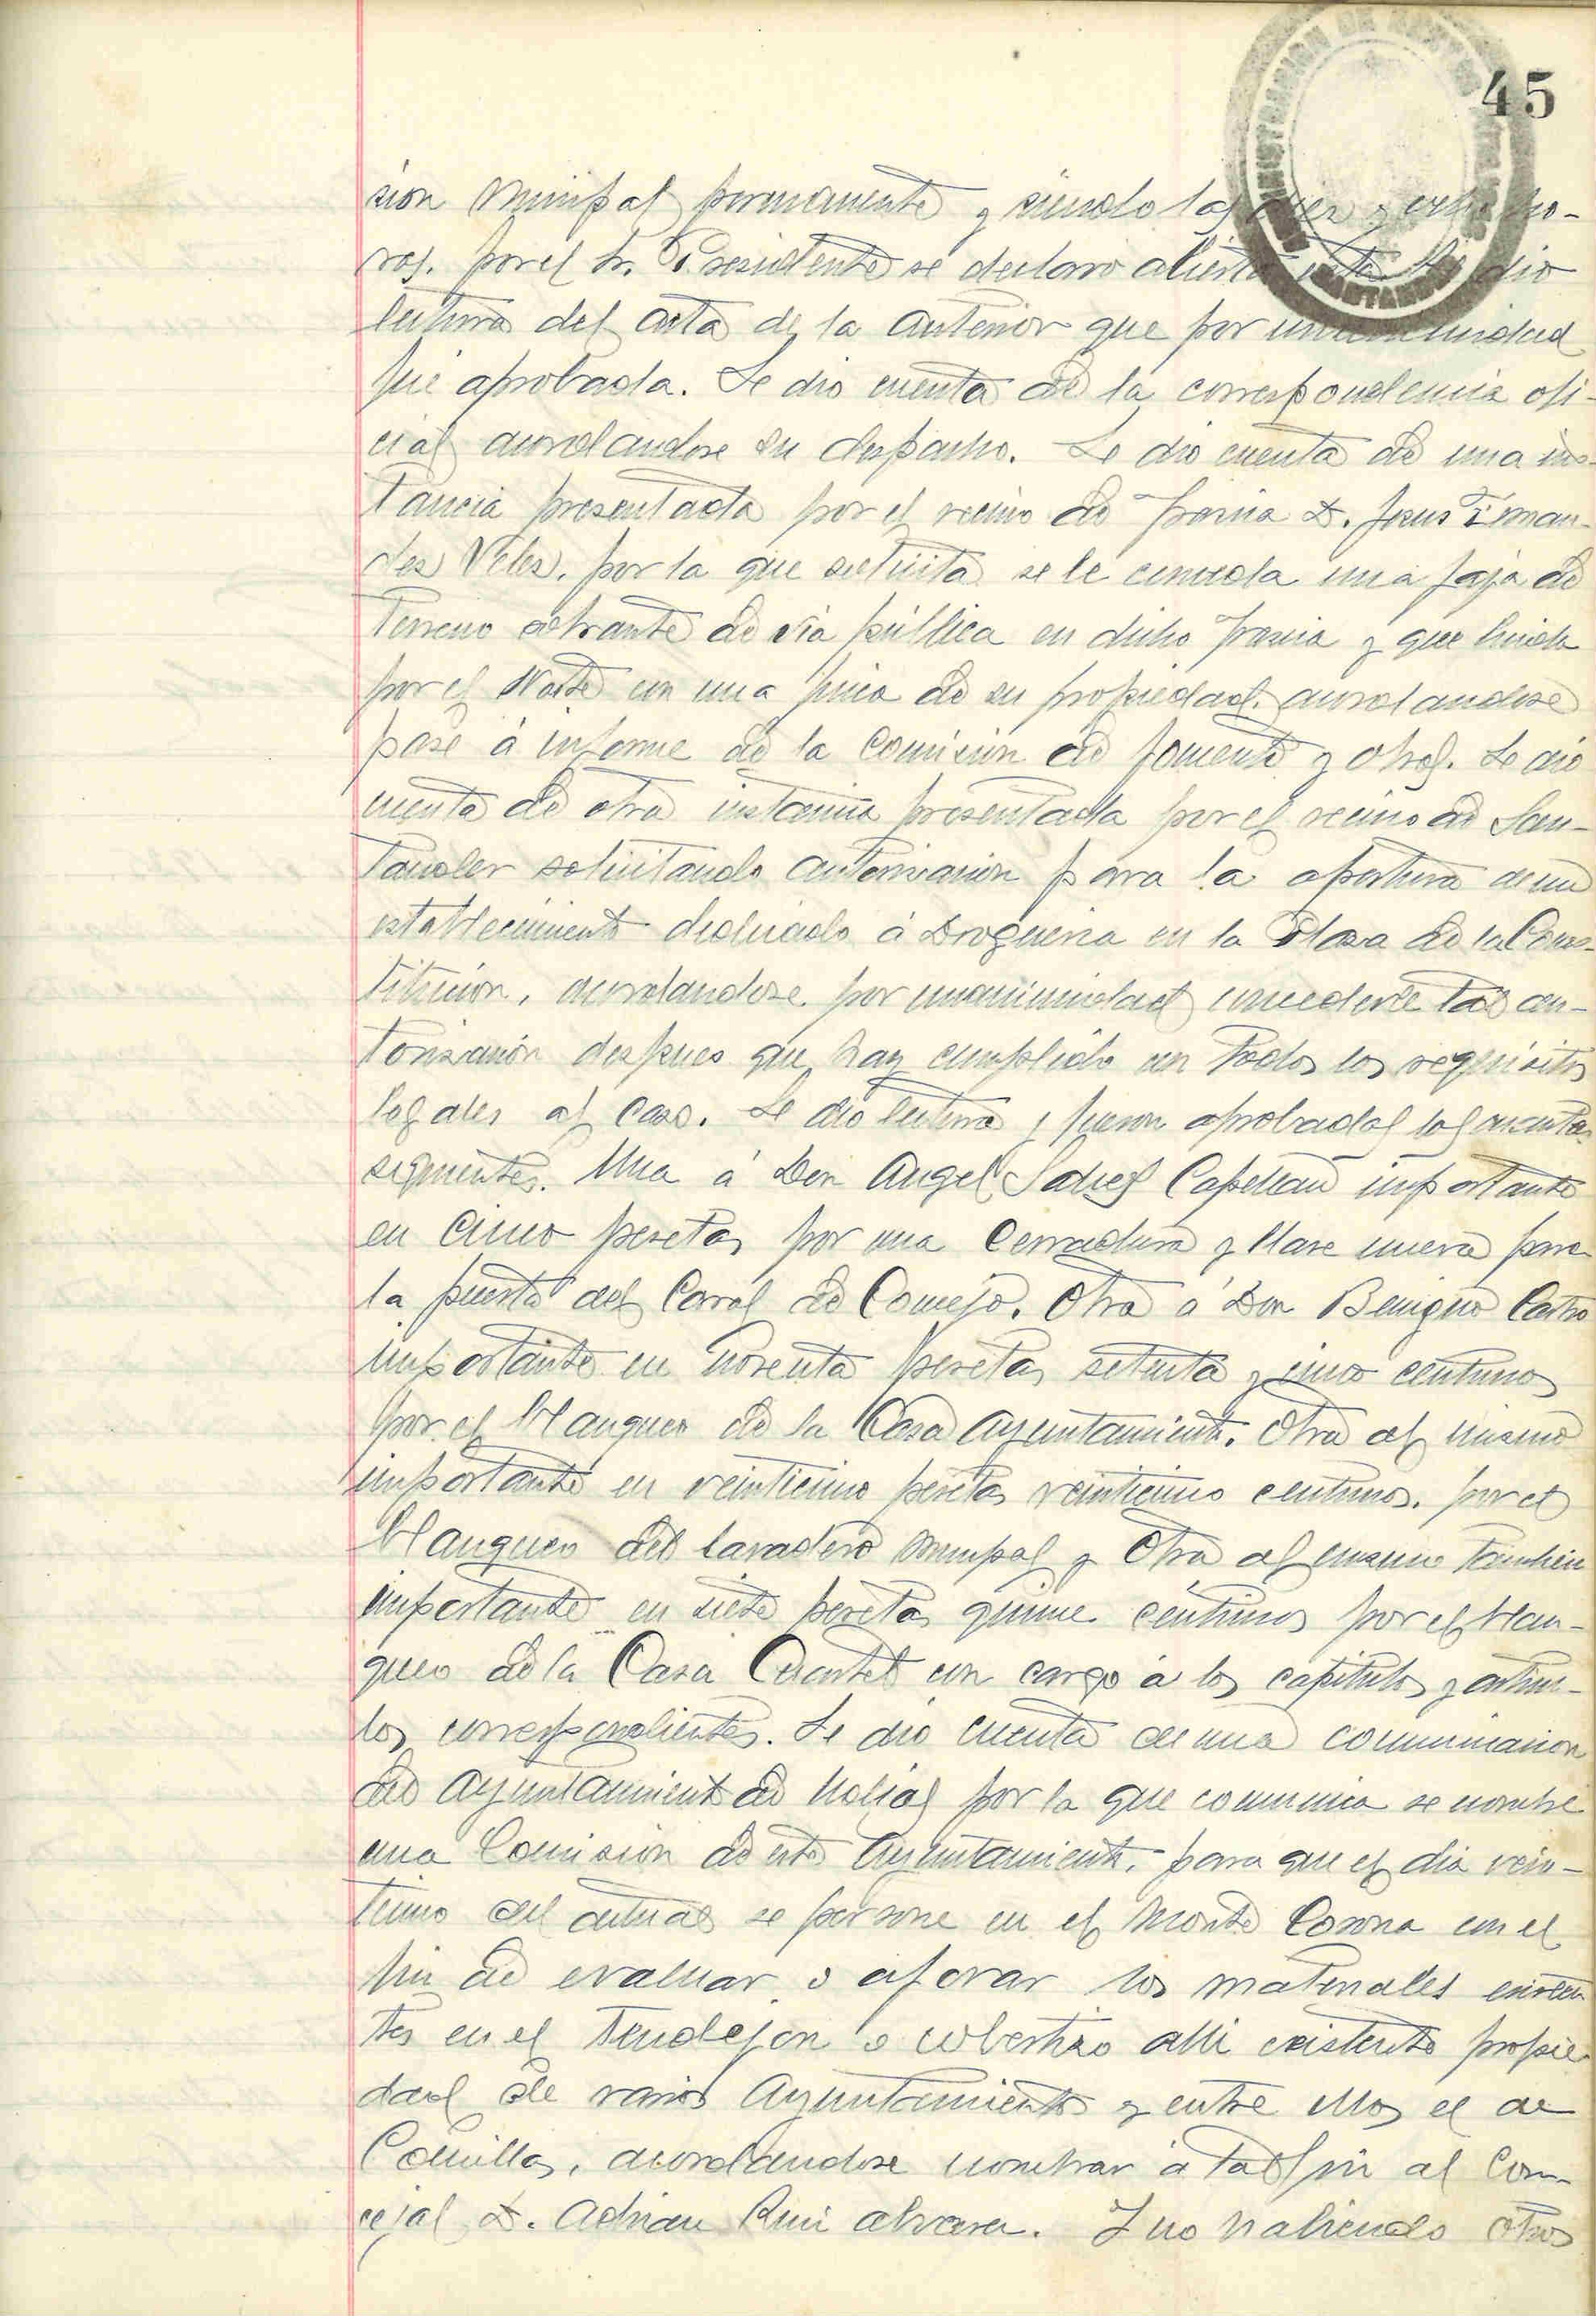 45
sion Munipal permanente y siendo las diez y ocho ho-
ras. por el Sr. Presidente se declaro abierta esta Se dio
lectura del acta de la anterior que por unanimidad
fue aprobada. Se dio cuenta de la correspondencia ofi-
cial acordandose su despacho. Se dio cuenta de una ins-
tancia presentada por el vecino de D. Jesus Fernan-
dez Velez. por la que solicita se le conceda una faja de
terreno sobrante de via pública en dicho y que linda
por el Norte con una finca de su propiedad. acordandose
pase á informe de la Comision de fomento y obras. Se dio
cuenta de otra instancia presentada por el vecino de San-
tander solicitando autorizacion para la apertura de un
establecimiento dedicado á Drogueria en la Plaza de la Cons-
titucion, acordandose por unanimidad concederle tal au-
torizacion despues que hay cumplido con todos los requisitos
legales al caso. Se dio lectura y fueron aprobadas las cuentas
siguientes. Una á Don Angel Capellan importante
en cinco pesetas por una Cerradura y llave nueva para
la puerta del Corral de Concejo. Otra á Don Benigno Castro
importante en noventa pesetas setenta y cinco centimos
por el blanqueo de la Casa Ayuntamiento. Otra al mismo
importante en veinticinco pesetas veinticinco centimos. por el
blanqueo del lavadero Munipal y Otra al mismo tambien
importante en siete pesetas quince céntimos por el blan-
queo de la Casa Cuartel con cargo á los capitulos y articu-
los correspondientes. Se dio cuenta de una comunicacion
del Ayuntamiento de Udias por la que comunica se nombre
una Comision de este Ayuntamiento. para que el dia vein-
ticinco del actual se persone en el Monte Corona con el
fin de evaluar o aforar los materiales existen
tes en el Tendejon o cobertizo alli existente propie-
dad de varios Ayuntamientos y entre ellos el de
Comillas, acordandose nombrar á tal fin al Con-
cejal D. Adrian Ruiz Y no habiendo otros